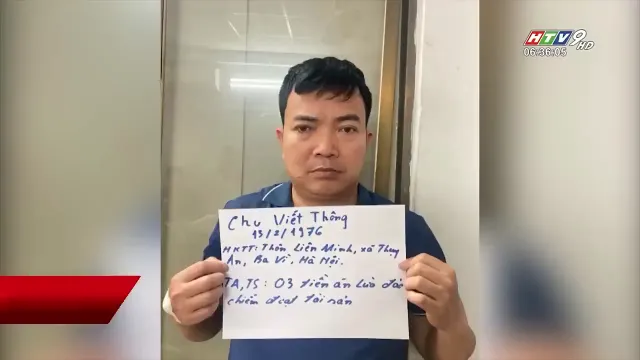 HTV9 HD
06:36:05
Chu Viết Thông
13/2/1976
HKTT: Thôn Liên Minh, xã Thụy
An, Ba Vì, Hà Nội.
TA,TS: 03 tiền án Lừa đảo
chiếm đoạt tài sản